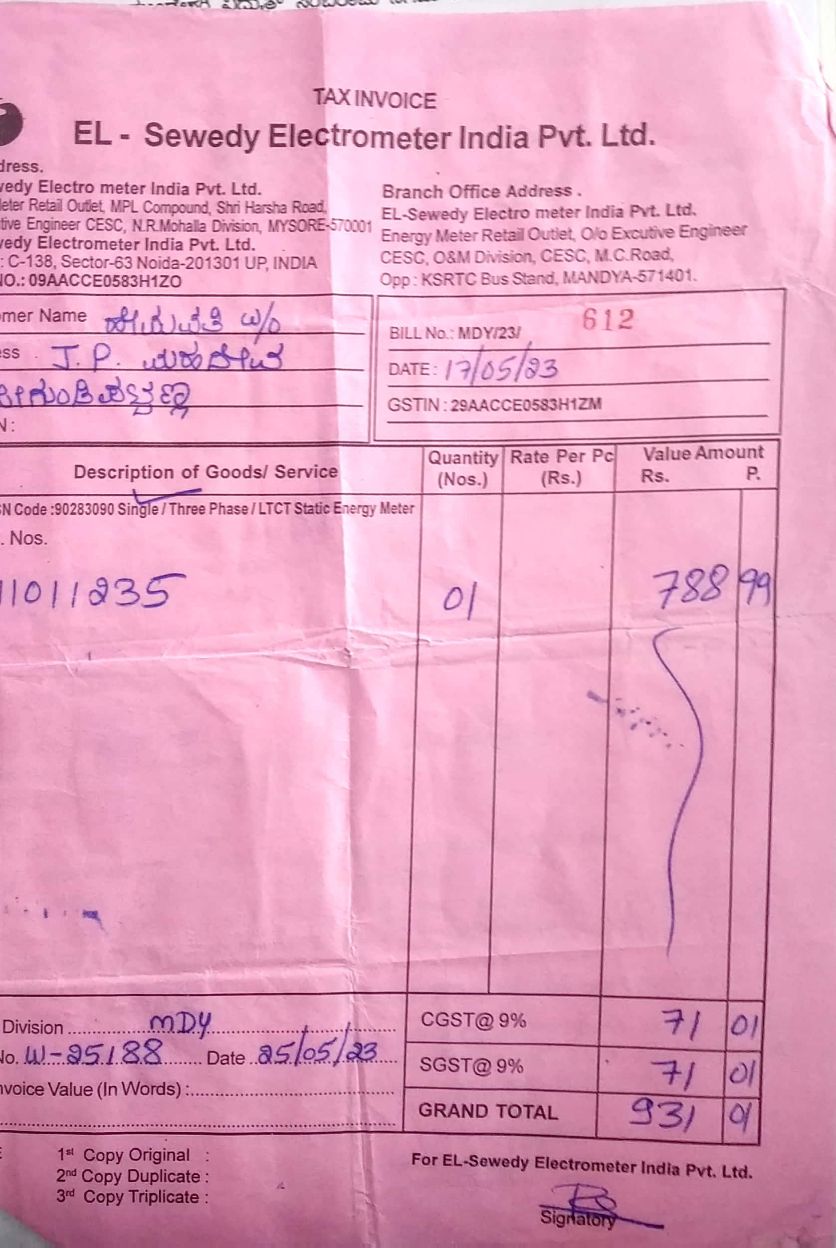 TAX INVOICE
EL - Sewedy Electrometer India Pvt. Ltd.
dress.
wedy Electro meter India Pvt. Ltd.
eter Retail Outlet, MPL Compound, Shri Harsha Road,
tive Engineer CESC, N.R.Mohalla Division, MYSORE-570001
wedy Electrometer India Pvt. Ltd.
: C-138, Sector-63 Noida-201301 UP, INDIA
NO.: 09AACCE0583H1ZO
Branch Office Address .
EL-Sewedy Electro meter India Pvt. Ltd.
Energy Meter Retail Outlet, O/o Excutive Engineer
CESC, O&M Division, CESC, M.C.Road,
Opp : KSRTC Bus Stand, MANDYA-571401.
mer Name w/o
ess . J. P.
N :
BILL No.: MDY/23/ 612
DATE : 17/05/23
GSTIN : 29AACCE0583H1ZM
Description of Goods/ Service Quantity (Nos.) Rate Per Pc (Rs.) Value Amount Rs. P.
N Code :90283090 Single / Three Phase / LTCT Static Energy Meter
. Nos.
11011235 01 788 99
Division MDY
No. W-25188 Date 25/05/23
nvoice Value (In Words) :
CGST@ 9% 71 01
SGST@ 9% 71 01
GRAND TOTAL 931 01
1st Copy Original :
2nd Copy Duplicate :
3rd Copy Triplicate :
For EL-Sewedy Electrometer India Pvt. Ltd.
Signatory